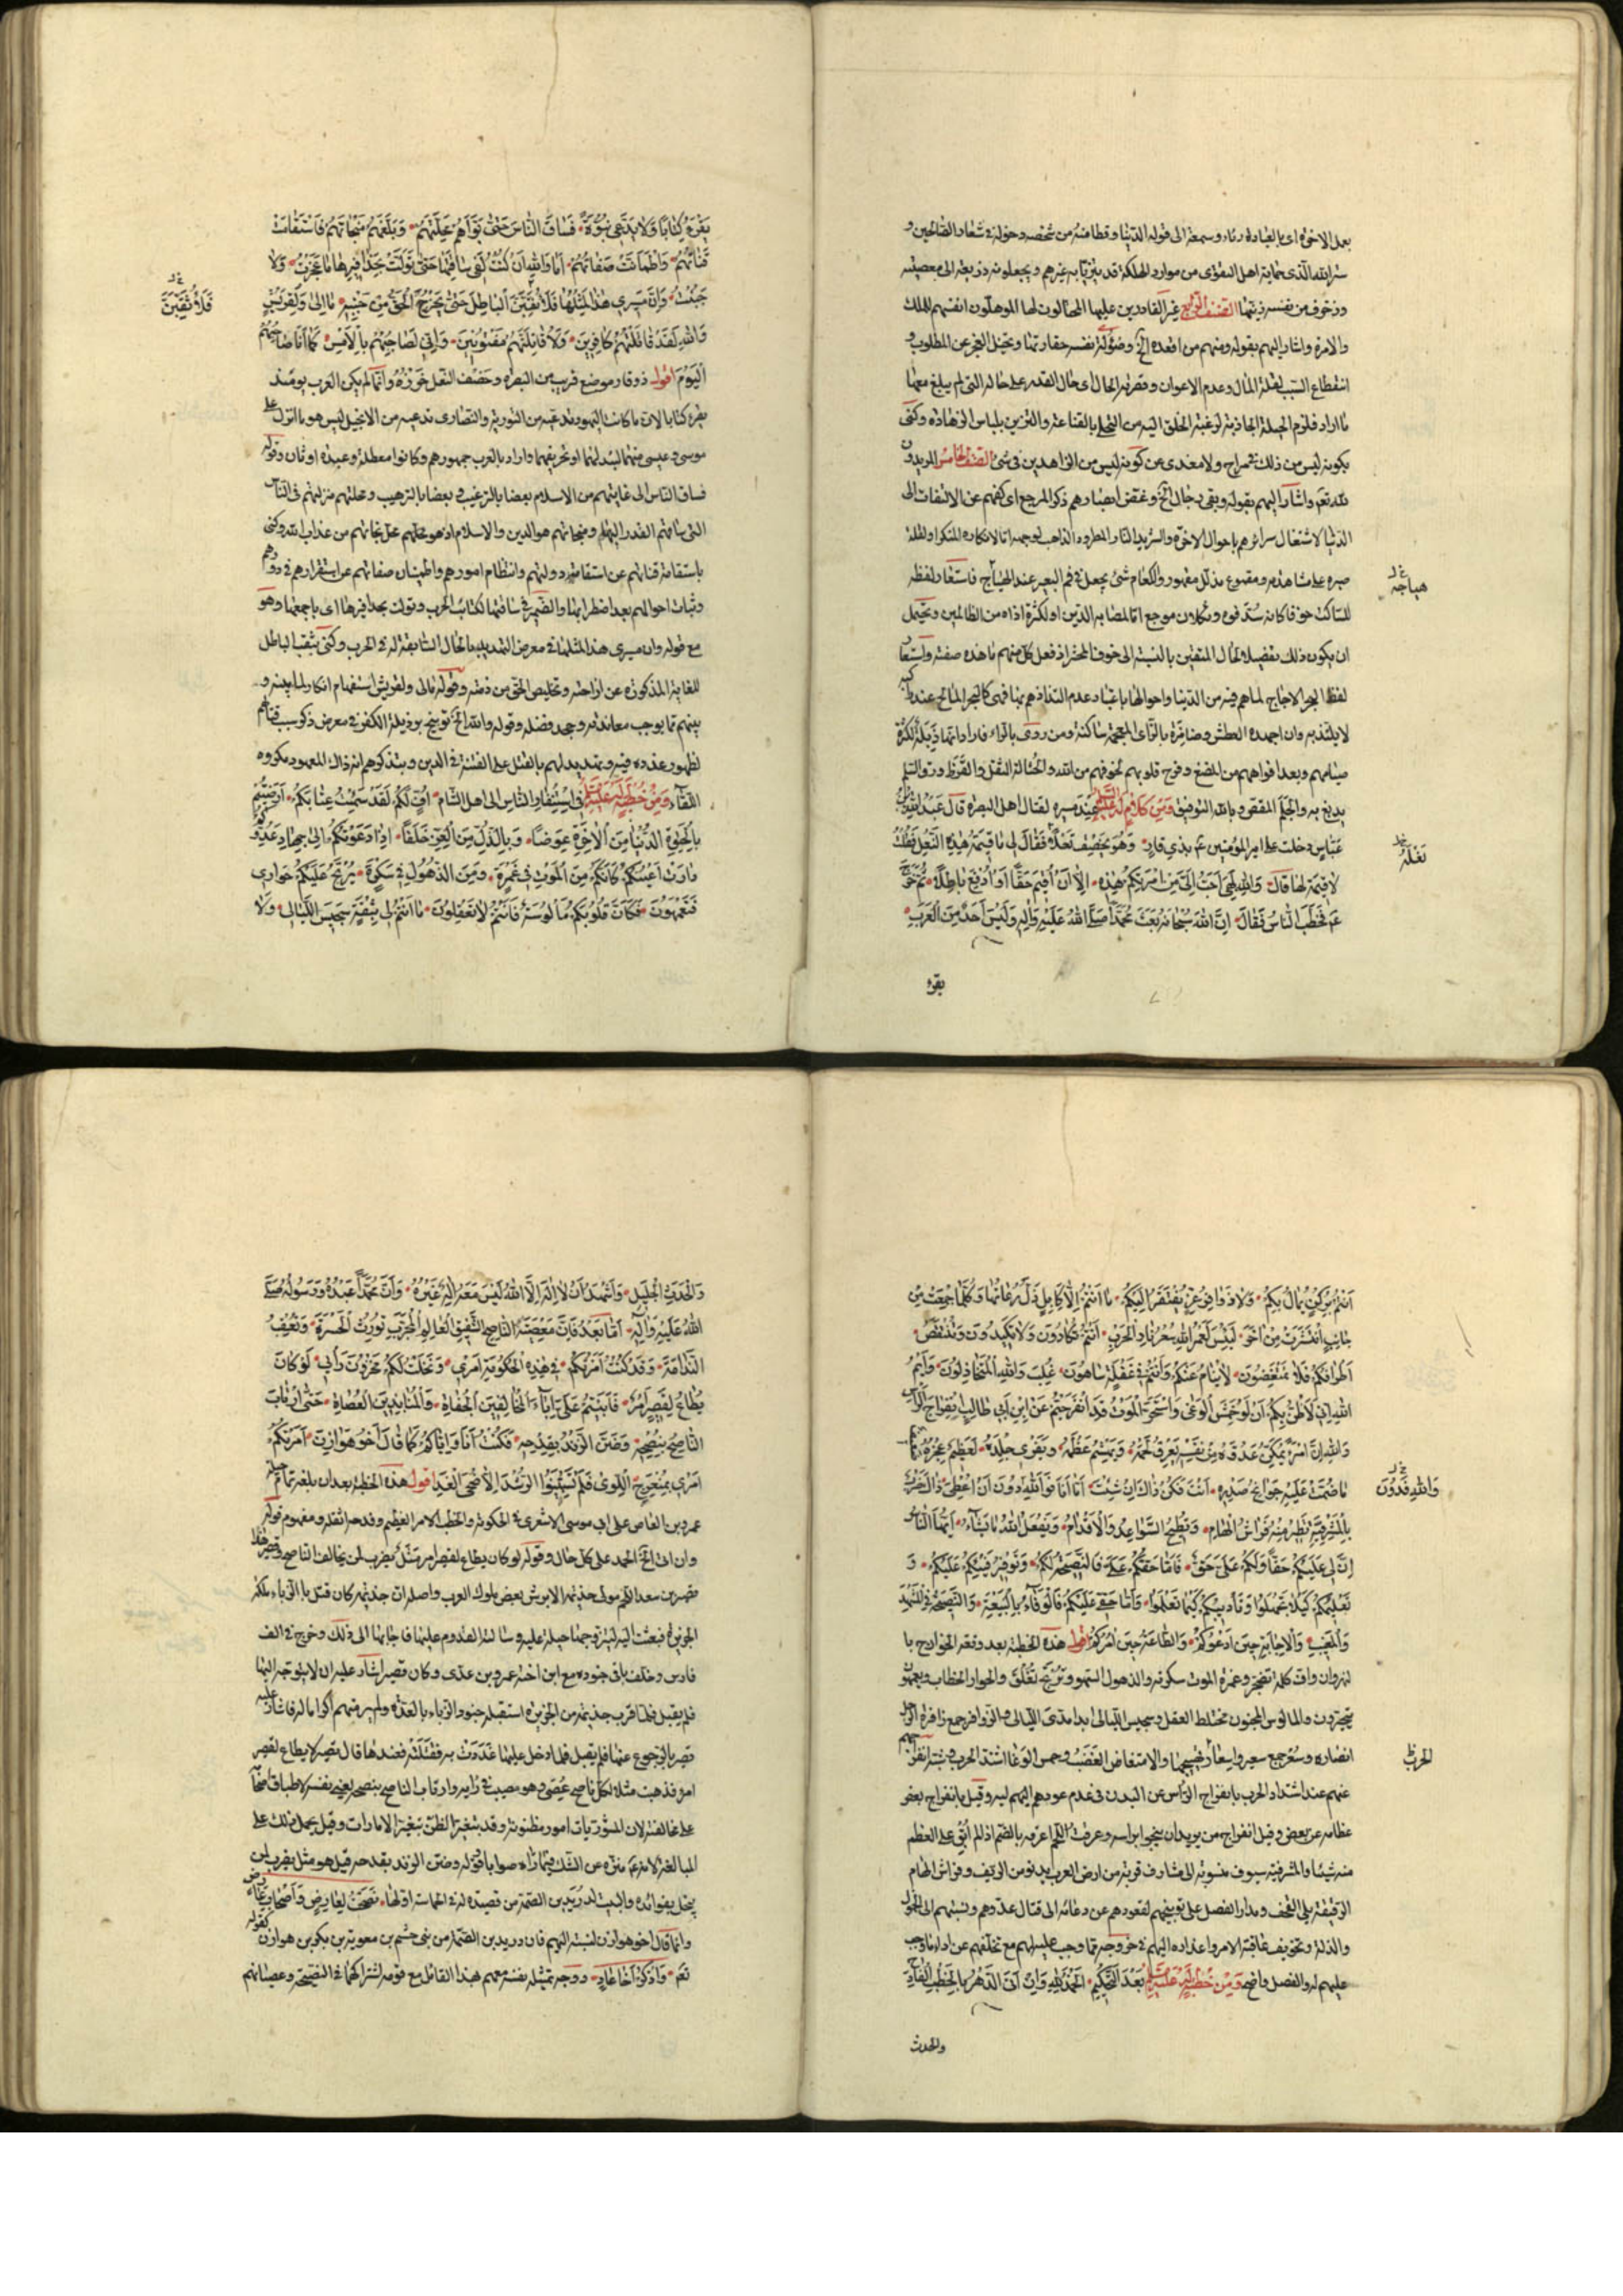 بعمل الاخرة اى بالعبادة رياء وسمعة الى قوله الدنيا وقطامنه من شخصه دخوله فى شعار الصالحين و
ستر الله الذى حماية اهل التقوى من موارد الهلكة قد يتزيّا به غيرهم ويجعلونه ذريعة الى معصيته
وزخرف من نفسه زيّنها الصنف الرابع غير القادرين عليها المحتالون لها الموهلون انفسهم للملك
والامرة واشار اليهم بقوله ومنهم من اقعده الخ وضؤلة نفسه حقارتها وتخيل العجز عن المطلوب و
انقطاع السبب لقلة المال وعدم الاعوان وقصرته الحال اى حال القدر على حاله التى لم يبلغ معها
ما اراد فلزم الحيلة الجاذبة لرغبة الخلق اليه من التحلى بالقناعة والتزين بلباس الزهادة وكنى
بكونه ليس من ذلك فى مراح ولا مغدى عن كونه ليس من الزاهدين فى شئ الصنف الخامس المريدون
لله تعم واشار اليهم بقوله وبقى رجال الخ وغض ابصارهم ذكر المرجع اى كفهم عن الالتفات الى
الدنيا لاشتغال سرائرهم باحوال الاخرة والشريد النادّ المطرود الذاهب لوجهه امّا لانكاره المنكر او لقلة
صبره على مشاهدته ومقموع مذلل مقهور والكعام شئ يجعل فى فم البعير عند الهياج فاستعار لفظه
هياجه
للساكت خوفا كانه سُدّ فوه وثكلان موجع امّا لمصابه الدين او لكثرة اذاه من الظالمين ويحتمل
ان يكون ذلك تفصيلا لحال المتقين بالنسبة الى خوف المحشر اذ فعل كل منهم ما هذه صفته واستعار
لفظ البحر الاجاج لما هم فيه من الدنيا واحوالها باعتبار عدم التذاذهم بها فهى كالبحر المالح عند راكبه
لا يلتذ به وان اجهده العطش وضامزة بالزاى المعجمة ساكنة ومن روى بالراء فاراد انها ذبلة لكثرة
صيامهم وبعد افواههم من المضغ وقرح قلوبهم لخوفهم من الله والحثالة الثفل والقرظ ورق السلم
يدبغ به والجلم المقص وبالله التوفيق ومن كلام له عليه السلام عند مسيره لقتال اهل البصرة قال عبد الله بن
عَبّاسٍ دخلت على امير المؤمنين عم بذى قار وَهُوَ يَخْصِفُ نَعْلًا فَقَالَ لى مَا قِيمَةُ هٰذِهِ النَّعْلِ فَقُلْتُ
نَعْلَهُ
لا قِيمَةَ لَهَا قَالَ وَاللهِ لَهِىَ اَحَبُّ اِلَىَّ مِنْ اِمْرَتِكُمْ هٰذِهِ اِلَّا اَنْ اُقِيمَ حَقًّا اَوْ اَدْفَعَ بَاطِلًا ثُمَّ خَرَجَ
عم فَخَطَبَ النَّاسَ فَقَالَ اِنَّ اللهَ سُبْحَانَهُ بَعَثَ مُحَمَّدًا صَلَّى اللهُ عَلَيْهِ وَآلِهِ وَلَيْسَ اَحَدٌ مِنَ الْعَرَبِ
يقرء
يَقْرَءُ كِتَابًا وَلَا يَدَّعِى نُبُوَّةً فَسَاقَ النَّاسَ حَتَّى بَوَّأَهُمْ مَحَلَّتَهُمْ وَبَلَّغَهُمْ مَنْجَاتَهُمْ فَاسْتَقَامَتْ
قَنَاتُهُمْ وَاطْمَأَنَّتْ صَفَاتُهُمْ اَمَا وَاللهِ اِنْ كُنْتُ لَفِى سَاقَتِهَا حَتَّى تَوَلَّتْ بِحَذَافِيرِهَا مَا عَجَزْتُ وَلَا
جَبُنْتُ وَاِنَّ مَسِيرِى هٰذَا لِمِثْلِهَا فَلَاَنْقُبَنَّ الْبَاطِلَ حَتَّى يَخْرُجَ الْحَقُّ مِنْ جَنْبِهِ مَا لِى وَلِقُرَيْشٍ
فَلَاَثْقُبَنَّ
وَاللهِ لَقَدْ قَاتَلْتُهُمْ كَافِرِينَ وَلَاُقَاتِلَنَّهُمْ مَفْتُونِينَ وَاِنِّى لَصَاحِبُهُمْ بِالْاَمْسِ كَمَا اَنَا صَاحِبُهُمُ
الْيَوْمَ اقول ذو قار موضع قريب من البصرة وخصف النعل خرزه وانما لم يكن العرب يومئذ
يقرء كتابا لان ما كانت اليهود تدعيه من التورية والنصارى تدعيه من الانجيل ليس هو ما انزل على
موسى وعيسى عليهما السلم لتبديلهما او تحريفهما واراد بالعرب جمهورهم وكانوا معطلة وعبدة اوثان وقوله
فساق الناس الى غايتهم من الاسلام بعضا بالترغيب وبعضا بالترهيب ومحلتهم منزلتهم فى الناس
التى ساقهم القدر اليها ومنجاتهم هو الدين والاسلام اذ هو محلهم محل نجاتهم من عذاب الله وكنى
باستقامة قناتهم عن استقامة دولتهم وانتظام امورهم واطمينان صفاتهم عن استقرارهم فى دورهم
وثبات احوالهم بعد اضطرابها والضمير فى ساقتها لكتائب الحرب وتولت بحذافيرها اى باجمعها وهو
مع قوله وان مسيرى هذا لمثلها فى معرض التهديد بالحال السابقة له فى الحرب وكنى بنقب الباطل
للغاية المذكورة عن ازاحته وتخليص الحق من ذمته وقوله مالى ولقريش استفهام انكار لما بينه و
بينهم مما يوجب معاندته وجحد فضله وقوله والله الخ توبيخ برذيلة الكفر فى معرض ذكر سبب قتالهم
لظهور عذره فيه وتهديد لهم بالقتل على الفتنة فى الدين ويتذكرهم انه ذاك المعهود مكروه
اللقاء وَمِنْ خُطْبَةٍ لَهُ عَلَيْهِ السَّلَمُ فى اسْتِنْفَارِ النَّاسِ الى اهل الشام اُفٍّ لَكُمْ لَقَدْ سَئِمْتُ عِتَابَكُمْ اَرَضِيتُمْ
بِالْحَيٰوةِ الدُّنْيَا مِنَ الْاٰخِرَةِ عِوَضًا وَبِالذُّلِّ مِنَ الْعِزِّ خَلَفًا اِذَا دَعَوْتُكُمْ اِلٰى جِهَادِ عَدُوِّكُمْ
دَارَتْ اَعْيُنُكُمْ كَاَنَّكُمْ مِنَ الْمَوْتِ فِى غَمْرَةٍ وَمِنَ الذُّهُولِ فِى سَكْرَةٍ يُرْتَجُ عَلَيْكُمْ حَوَارِى
فَتَعْمَهُونَ فَكَاَنَّ قُلُوبَكُمْ مَأْلُوسَةٌ فَاَنْتُمْ لَا تَعْقِلُونَ مَا اَنْتُمْ لِى بِثِقَةٍ سَجِيسَ اللَّيَالِى وَلَا
اَنْتُمْ بِرُكْنٍ يُمَالُ بِكُمْ وَلَا ذَوَافِرِ عِزٍّ يُفْتَقَرُ اِلَيْكُمْ مَا اَنْتُمْ اِلَّا كَاِبِلٍ ضَلَّ رُعَاتُهَا وَكُلَّمَا جُمِعَتْ مِنْ
جَانِبٍ انْتَشَرَتْ مِنْ اٰخَرَ لَبِئْسَ لَعَمْرُ اللهِ سُعْرُ نَارِ الْحَرْبِ اَنْتُمْ تُكَادُونَ وَلَا تَكِيدُونَ وَتُنْتَقَصُ
اَطْرَافُكُمْ فَلَا تَمْتَعِضُونَ لَا يُنَامُ عَنْكُمْ وَاَنْتُمْ فِى غَفْلَةٍ سَاهُونَ غُلِبَ وَاللهِ الْمُتَخَاذِلُونَ وَاَيْمُ
اللهِ اِنِّى لَاَظُنُّ بِكُمْ اَنْ لَوْ حَمِسَ الْوَغَى وَاسْتَحَرَّ الْمَوْتُ قَدِ انْفَرَجْتُمْ عَنِ ابْنِ اَبِى طَالِبٍ انْفِرَاجَ الرَّأْسِ
وَاللهِ اِنَّ امْرَءً يُمَكِّنُ عَدُوَّهُ مِنْ نَفْسِهِ يَعْرُقُ لَحْمَهُ وَيَهْشِمُ عَظْمَهُ وَيَفْرِى جِلْدَهُ لَعَظِيمٌ عَجْزُهُ ضَعِيفٌ
مَا ضُمَّتْ عَلَيْهِ جَوَانِحُ صَدْرِهِ اَنْتَ فَكُنْ ذَاكَ اِنْ شِئْتَ اَمَّا اَنَا فَوَاللهِ دُونَ اَنْ اُعْطِىَ ذَاكَ ضَرْبٌ
وَاللهِ فَدُونَ
بِالْمَشْرَفِيَّةِ تَطِيرُ مِنْهُ فَرَاشُ الْهَامِ وَتَطِيحُ السَّوَاعِدُ وَالْاَقْدَامُ وَيَفْعَلُ اللهُ مَا يَشَاءُ اَيُّهَا النَّاسُ
اِنَّ لِى عَلَيْكُمْ حَقًّا وَلَكُمْ عَلَىَّ حَقٌّ فَاَمَّا حَقُّكُمْ عَلَىَّ فَالنَّصِيحَةُ لَكُمْ وَتَوْفِيرُ فَيْئِكُمْ عَلَيْكُمْ وَ
تَعْلِيمُكُمْ كَيْلَا تَجْهَلُوا وَتَأْدِيبُكُمْ كَيْمَا تَعْلَمُوا وَاَمَّا حَقِّى عَلَيْكُمْ فَالْوَفَاءُ بِالْبَيْعَةِ وَالنَّصِيحَةُ فِى الْمَشْهَدِ
وَالْمَغِيبِ وَالْاِجَابَةُ حِينَ اَدْعُوكُمْ وَالطَّاعَةُ حِينَ اٰمُرُكُمْ اقول هذه الخطبة بعد وقعة الخوارج با
لنهروان واف كلمة تضجر وغمرة الموت سكرته والذهول السهو ويُرْتَج تُغلَق والحوار الخطاب ويعمهون
يتحيرون والمالوس المجنون مختلط العقل وسجيس الليالى ابدا مدى الليالى والزوافر جمع زافرة الرجل
انصاره وسُعر جمع سعير واستعار تهييجها والامتعاض الغضب وحمس الوغا اشتد الحرب وشبه انفراجهم
الحرب
عنهم عند اشتداد الحرب بانفراج الرأس عن البدن فى عدم عودهم اليهم ليه وقيل بانفراج بعض
عظامه عن بعض وقيل انفراج من يريد ان ينجو براسه وعرقت اللحم اعرقه بالضم اذا لم ابق على العظم
منه شيئا والمشرفية سيوف منسوبة الى مشارف قرية من ارض العرب يدنو من الريف وفراش الهام
الرقيقة يلى القحف ومدار الفصل على توبيخهم لقعودهم عن دعائه الى قتال عدوهم ونسبتهم الى الجهل
والذلة وتخويف عاقبة الامر واعذاره اليهم فى خروجه مما وجب عليه لهم مع تخلفهم عن اداء ما وجب
عليهم له والفصل واضح وَمِنْ خُطْبَةٍ لَهُ عَلَيْهِ السَّلَمُ بَعْدَ التَّحْكِيمِ الْحَمْدُ لِلّٰهِ وَاِنْ اَتَى الدَّهْرُ بِالْخَطْبِ الْفَادِحِ
والحدث
وَالْحَدَثِ الْجَلِيلِ وَاَشْهَدُ اَنْ لَا اِلٰهَ اِلَّا اللهُ لَيْسَ مَعَهُ اِلٰهٌ غَيْرُهُ وَاَنَّ مُحَمَّدًا عَبْدُهُ وَرَسُولُهُ صَلَّى
اللهُ عَلَيْهِ وَآلِهِ اَمَّا بَعْدُ فَاِنَّ مَعْصِيَةَ النَّاصِحِ الشَّفِيقِ الْعَالِمِ الْمُجَرِّبِ تُورِثُ الْحَسْرَةَ وَتُعْقِبُ
النَّدَامَةَ وَقَدْ كُنْتُ اَمَرْتُكُمْ فِى هٰذِهِ الْحُكُومَةِ اَمْرِى وَنَخَلْتُ لَكُمْ مَخْزُونَ رَأْيِى لَوْ كَانَ
يُطَاعُ لِقَصِيرٍ اَمْرٌ فَاَبَيْتُمْ عَلَىَّ اِبَاءَ الْمُخَالِفِينَ الْجُفَاةِ وَالْمُنَابِذِينَ الْعُصَاةِ حَتَّى ارْتَابَ
النَّاصِحُ بِنُصْحِهِ وَضَنَّ الزَّنْدُ بِقَدْحِهِ فَكُنْتُ اَنَا وَاِيَّاكُمْ كَمَا قَالَ اَخُو هَوَازِنَ اَمَرْتُكُمْ
اَمْرِى بِمُنْعَرَجِ اللِّوٰى فَلَمْ تَسْتَبِينُوا الرُّشْدَ اِلَّا ضُحَى الْغَدِ اقول هذه الخطبة بعد ان بلغه تمام حيلة
عمرو بن العاص على ابى موسى الاشعرى فى الحكومة والخطب الامر العظيم وفدحه اثقله ومفهوم قوله
وان اتى الخ الحمد على كل حال وقوله لو كان يطاع لقصير امر مَثَل يضرب لمن يخالف الناصح وقصير هذا
قصير بن سعد اللخمى مولى جذيمة الابرش بعض ملوك العرب واصله ان جذيمة كان قتل ابا الزباء ملكة
الجزيرة فبعثت اليه ليتزوجها حيلة عليه وسالته القدوم عليها فاجابها الى ذلك وخرج فى الف
فارس وخلف باقى جنوده مع ابن اخته عمرو بن عدى وكان قصير اشار عليه ان لا يتوجه اليها
فلم يقبل فلما قرب جذيمة من الجزيرة استقبله جنود الزباء بالعدة ولم ير منهم اكراما له فاشار عليه
قصير بالرجوع عنها فلم يقبل فلما دخل عليها غَدَرَتْ به فقَتَلَتْه فعندها قال قصير لا يطاع لقصير
امر فذهبت مثلا لكل ناصح عُصِىَ وهو مصيب فى رايه وارتاب الناصح بنصحه يعنى نفسه لاطباق اصحابه
على مخالفته لان المشورتيات امور مظنونة وقد يتغير الظن بتغير الامارات وقيل يحمل ذلك على
المبالغة لانه عم منزه عن الشك فيما رآه صوابا قوله وضن الزند بقدحه قيل هو مثل يضرب لمن
يبخل بفوائده والبيت لدُرَيد بن الصمة من قصيدة له فى الحماسة اولها نَصَحْتُ لِعَارِضٍ وَاَصْحَابِ عَارِضٍ
وانما قال اخو هوازن لنسبته اليهم فان دريد بن الصمة من بنى جشم بن معوية بن بكر بن هوازن كقوله
تعم وَاذْكُرْ اَخَا عَادٍ ووجه تمثيله نفسه معهم بهذا القائل مع قومه اشتراكهما فى النصيحة وعصيانهم